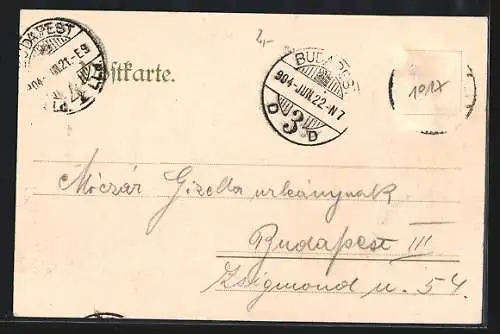 2,-
BUDAPEST
904-JUN.21.-E9
Postkarte.
BUDAPEST
904-JUN.22-N7
D 3 D
1017
Móczár Gizella urleánynak
Budapest III
Zsigmond u. 54.